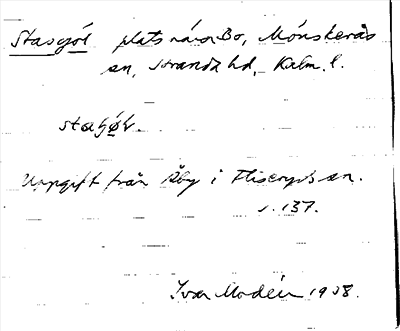 Stasgöl plats när Bo, Mönsterås
sn, Stranda hd, Kalm. l.
Uppgift från Åby i Fliseryds sn.
s. 137.
Ivar Modéer 1938.